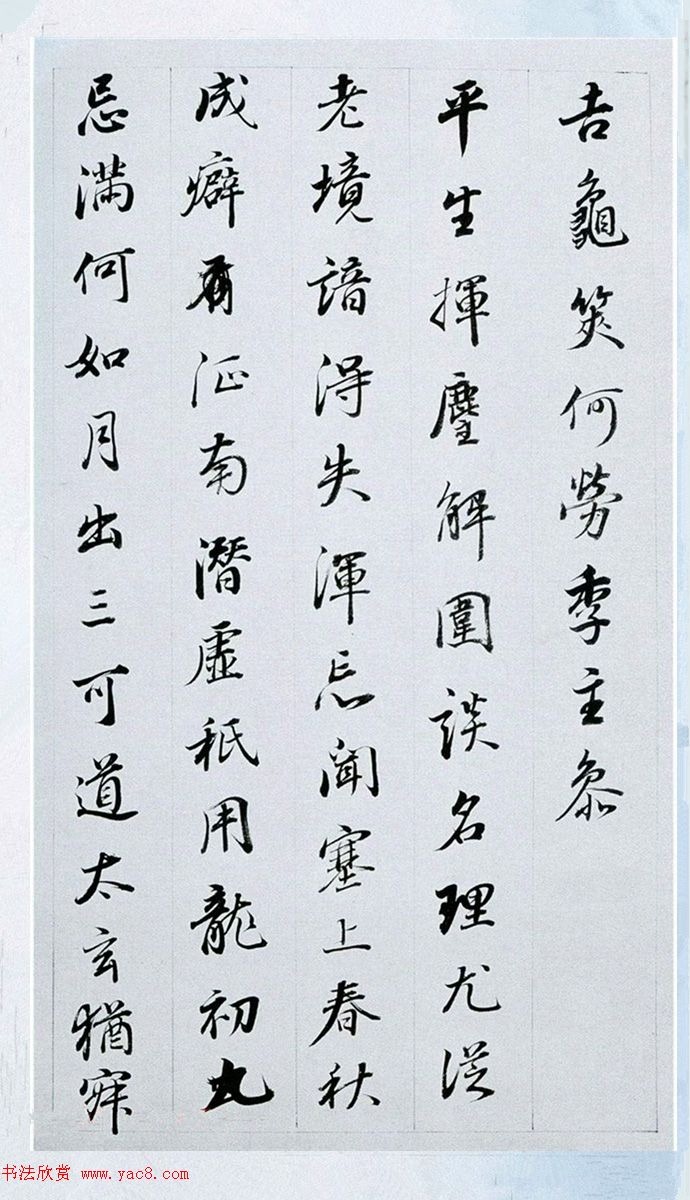 吉龜筴何勞季主參
平生揮麈解圍談名理尤從
老境諳得失渾忘聞塞上春秋
成癖有征南潛虛祇用龍初九
忌滿何如月出三可道太玄猶
书法欣赏 www.yac8.com